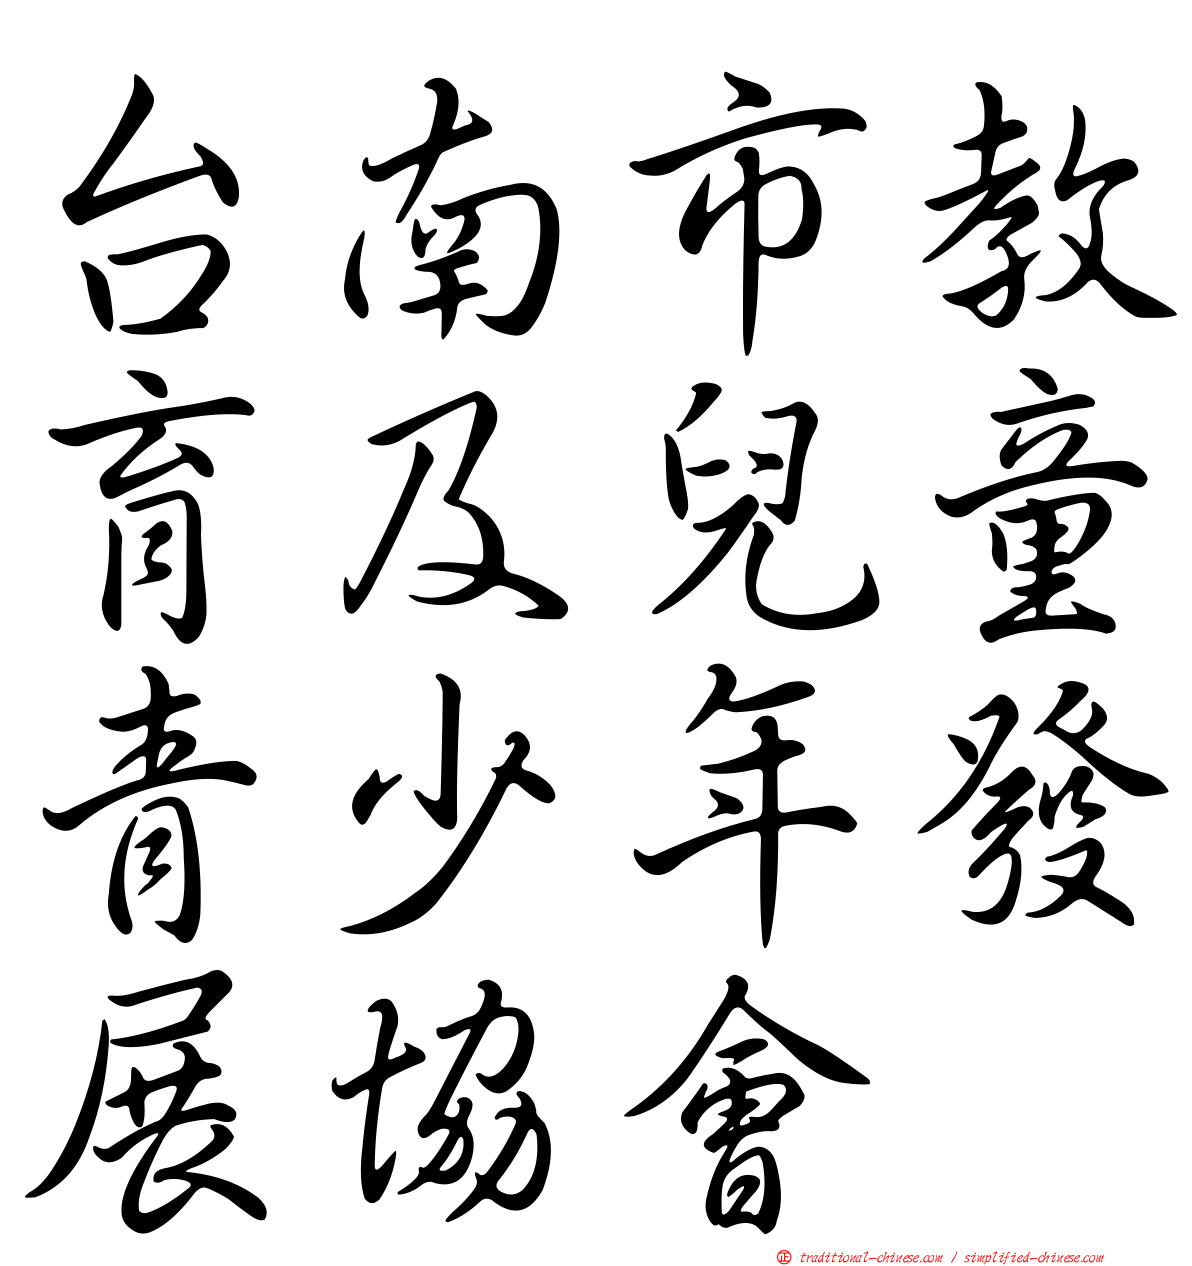 台南市教
育及兒童
青少年發
展協會
正 traditional-chinese.com / simplified-chinese.com